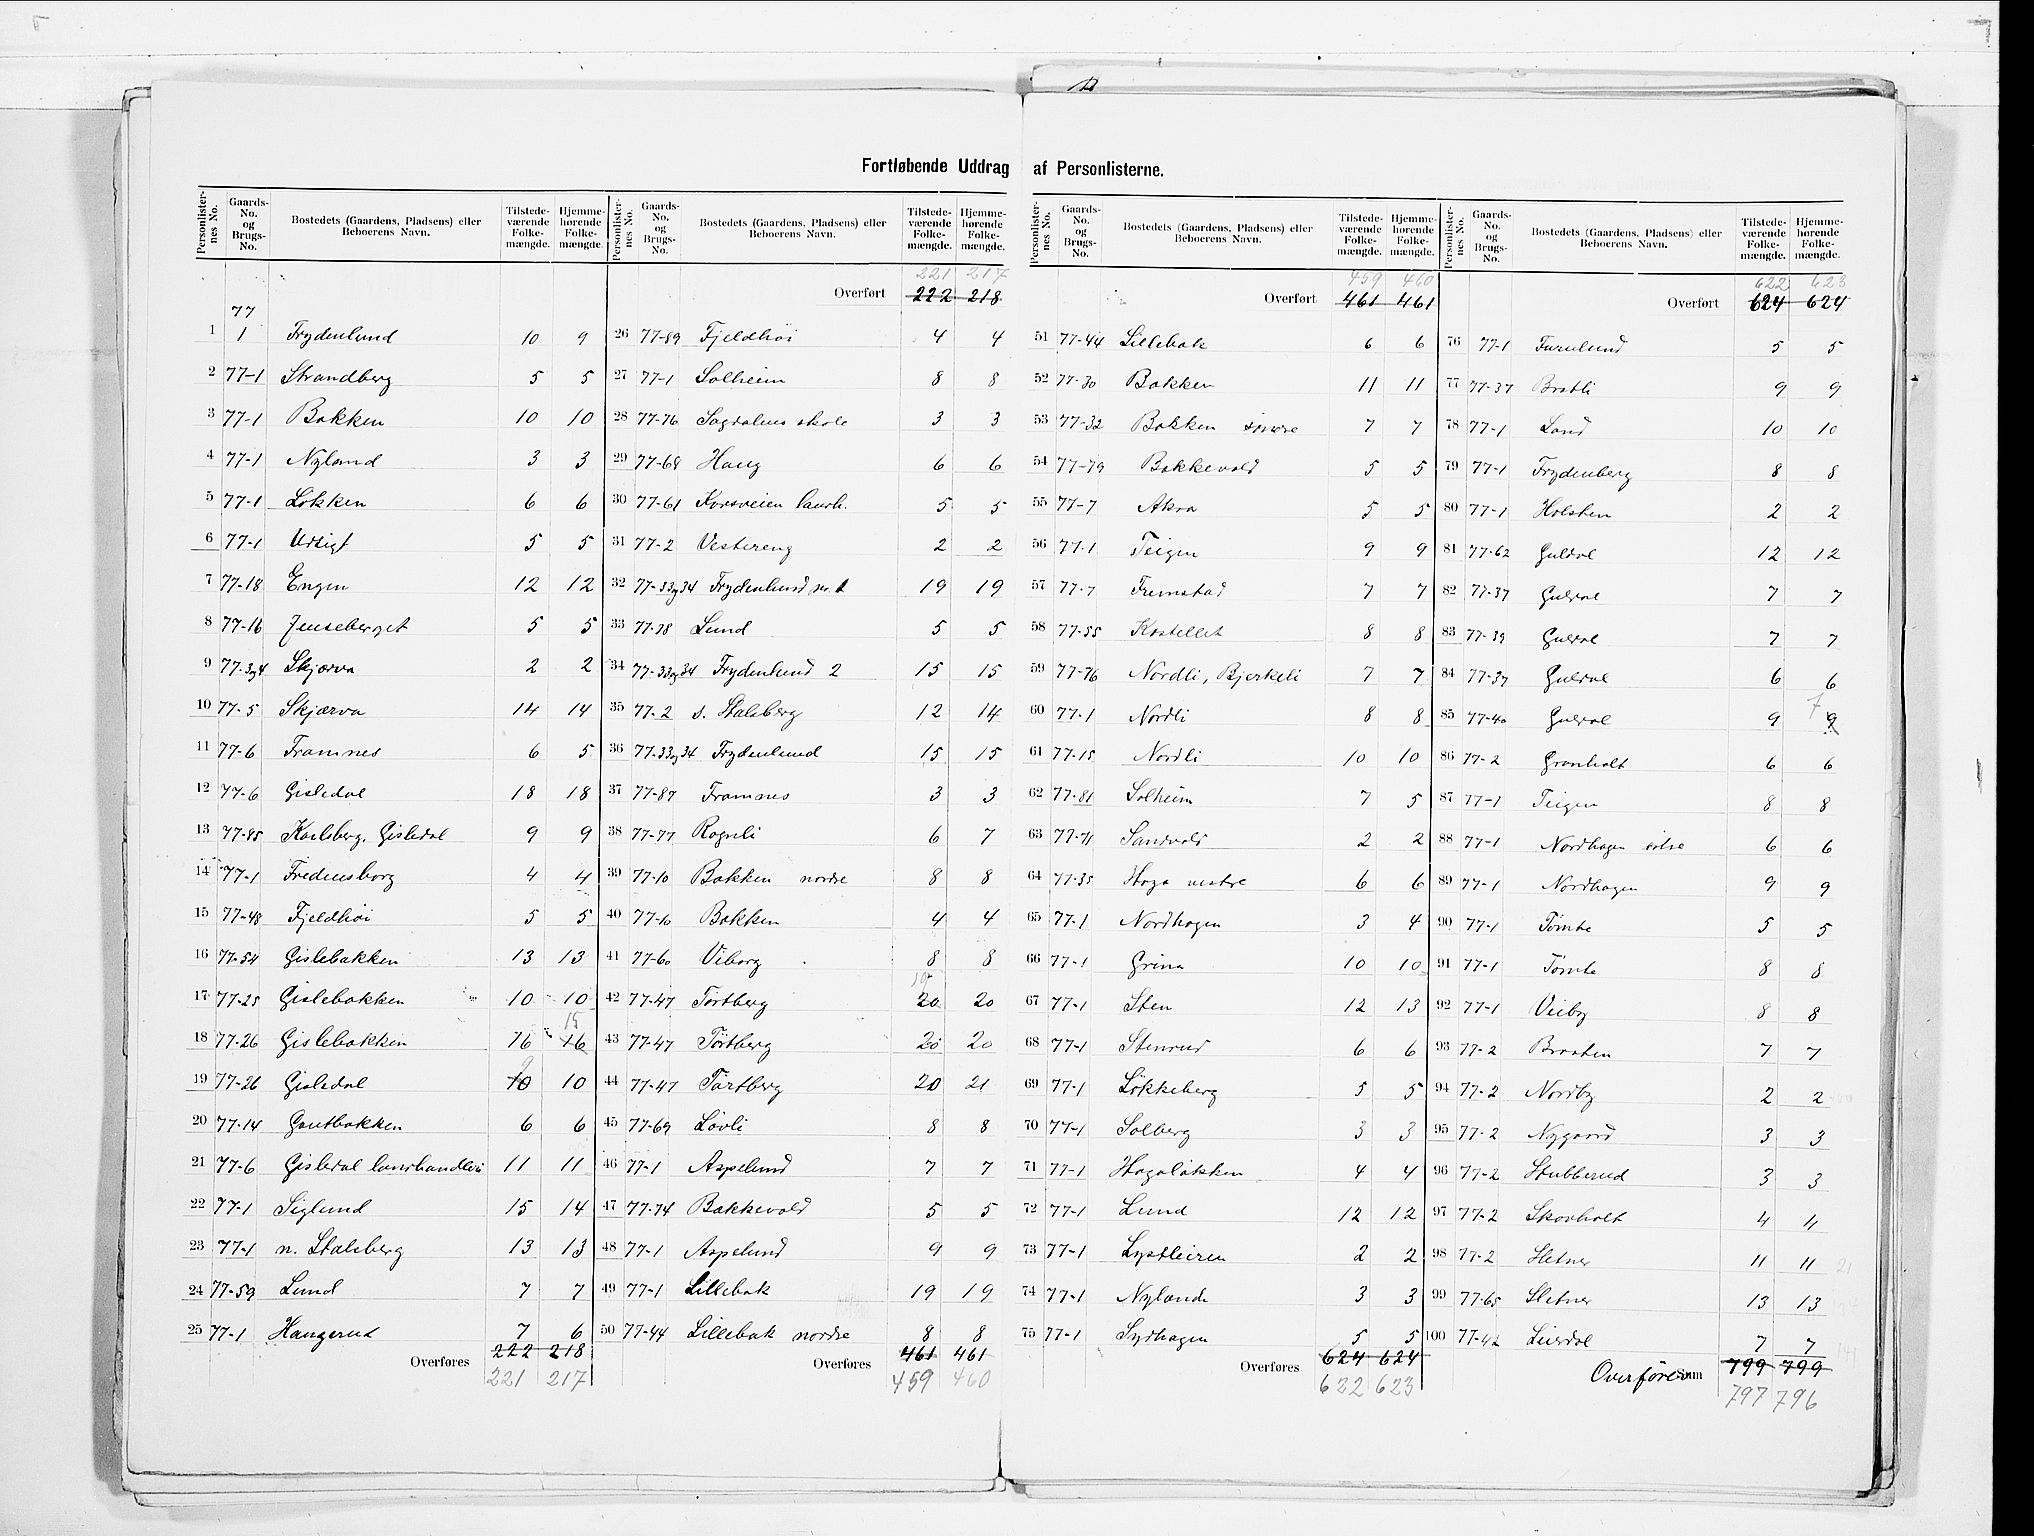 Fortløbende Uddrag af Personlisterne.
Personlisternes No. Gaards-No. og Brugs-No. Bostedets (Gaardens, Pladsens) eller Beboerens Navn. Tilstedeværende Folkemængde. Hjemmehørende Folkemængde.
77
1 1 Frydenlund 10 9
2 77-1 Strandberg 5 5
3 77-1 Bakken 10 10
4 77-1 Nyland 3 3
5 77-1 Løkken 6 6
6 77-1 Udsigt 5 5
7 77-18 Engen 12 12
8 77-16 Jenseberget 5 5
9 77-3og4 Skjærva 2 2
10 77-5 Skjærva 14 14
11 77-6 Framnes 6 5
12 77-6 Gisledal 18 18
13 77-85 Karlsberg, Gisledal 9 9
14 77-1 Fredensborg 4 4
15 77-48 Fjeldhöi 5 5
16 77-54 Gislebakken 13 13
17 77-25 Gislebakken 10 10
15
18 77-26 Gislebakken 16 16
9
19 77-26 Gisledal 10 10
20 77-14 Gautbakken 6 6
21 77-6 Gisledal landhandleri 11 11
22 77-1 Siglund 15 14
23 77-1 n. Stalsberg 13 13
24 77-59 Lund 7 7
25 77-1 Haugerud 7 6
Overføres 222 218
221 217
Personlisternes No. Gaards-No. og Brugs-No. Bostedets (Gaardens, Pladsens) eller Beboerens Navn. Tilstedeværende Folkemængde. Hjemmehørende Folkemængde.
221 217
Overført 222 218
26 77-89 Fjeldhöi 4 4
27 77-1 Solheim 8 8
28 77-76 Sagdalens skole 3 3
29 77-68 Haug 6 6
30 77-61 Korsveien landh. 5 5
31 77-2 Vestereng 2 2
32 77-33og34 Frydenlund nr. 1 19 19
33 77-78 Lund 5 5
34 77-33og34 Frydenlund 2 15 15
35 77-2 s. Stalsberg 12 14
36 77-33og34 Frydenlund 15 15
37 77-87 Framnes 3 3
38 77-77 Rognli 6 7
39 77-10 Bakken nordre 8 8
40 77-10 Bakken 4 4
41 77-60 Viborg 8 8
19
42 77-47 Törtberg 20 20
43 77-47 Törtberg 20 20
44 77-47 Törtberg 20 21
45 77-69 Lövli 8 8
46 77-1 Aspelund 7 7
47 77-74 Bakkevold 5 5
48 77-1 Aspelund 9 9
49 77-1 Lillebak 19 19
50 77-44 Lillebak nordre 8 8
Overføres 461 461
459 460
Personlisternes No. Gaards-No. og Brugs-No. Bostedets (Gaardens, Pladsens) eller Beboerens Navn. Tilstedeværende Folkemængde. Hjemmehørende Folkemængde.
459 460
Overført 461 461
51 77-44 Lillebak 6 6
52 77-30 Bakken 11 11
53 77-32 Bakken söndre 7 7
54 77-79 Bakkevold 5 5
55 77-7 Akra 5 5
56 77-1 Teigen 9 9
57 77-7 Fremstad 7 7
58 77-55 Kastellet 8 8
59 77-76 Nordli, Bjerkeli 7 7
60 77-1 Nordli 8 8
61 77-15 Nordli 10 10
62 77-81 Solheim 7 5
63 77-71 Sandvold 2 2
64 77-35 Haga vestre 6 6
65 77-1 Nordhagen 3 4
66 77-1 Grina 10 10
67 77-1 Sten 12 13
68 77-1 Stenrud 6 6
69 77-1 Løkkeberg 5 5
70 77-1 Solberg 3 3
71 77-1 Hagaløkken 4 4
72 77-1 Lund 12 12
73 77-1 Lystleiren 2 2
74 77-1 Nylænde 3 3
75 77-1 Sydhagen 5 5
Overføres 624 624
622 623
Personlisternes No. Gaards-No. og Brugs-No. Bostedets (Gaardens, Pladsens) eller Beboerens Navn. Tilstedeværende Folkemængde. Hjemmehørende Folkemængde.
622 623
Overført 624 624
76 77-1 Furulund 5 5
77 77-37 Bratli 9 9
78 77-1 Land 10 10
79 77-1 Frydenberg 8 8
80 77-1 Holsten 2 2
81 77-62 Guldal 12 12
82 77-37 Guldal 7 7
83 77-39 Guldal 7 7
84 77-37 Guldal 6 6
7
85 77-40 Guldal 9 9
86 77-2 Granholt 6 6
87 77-1 Teigen 8 8
88 77-1 Nordhagen 6 6
89 77-1 Nordhagen 9 9
90 77-1 Tømte 5 5
91 77-1 Tømte 8 8
92 77-1 Veiby 8 8
93 77-2 Braaten 7 7
94 77-2 Nordby 2 2
95 77-2 Nygaard 3 3
96 77-2 Stubberud 3 3
97 77-2 Skovholt 4 4
98 77-2 Sletner 11 11
99 77-65 Sletner 13 13
100 77-42 Leirdal 7 7
Overføres Sum 799 799
797 796